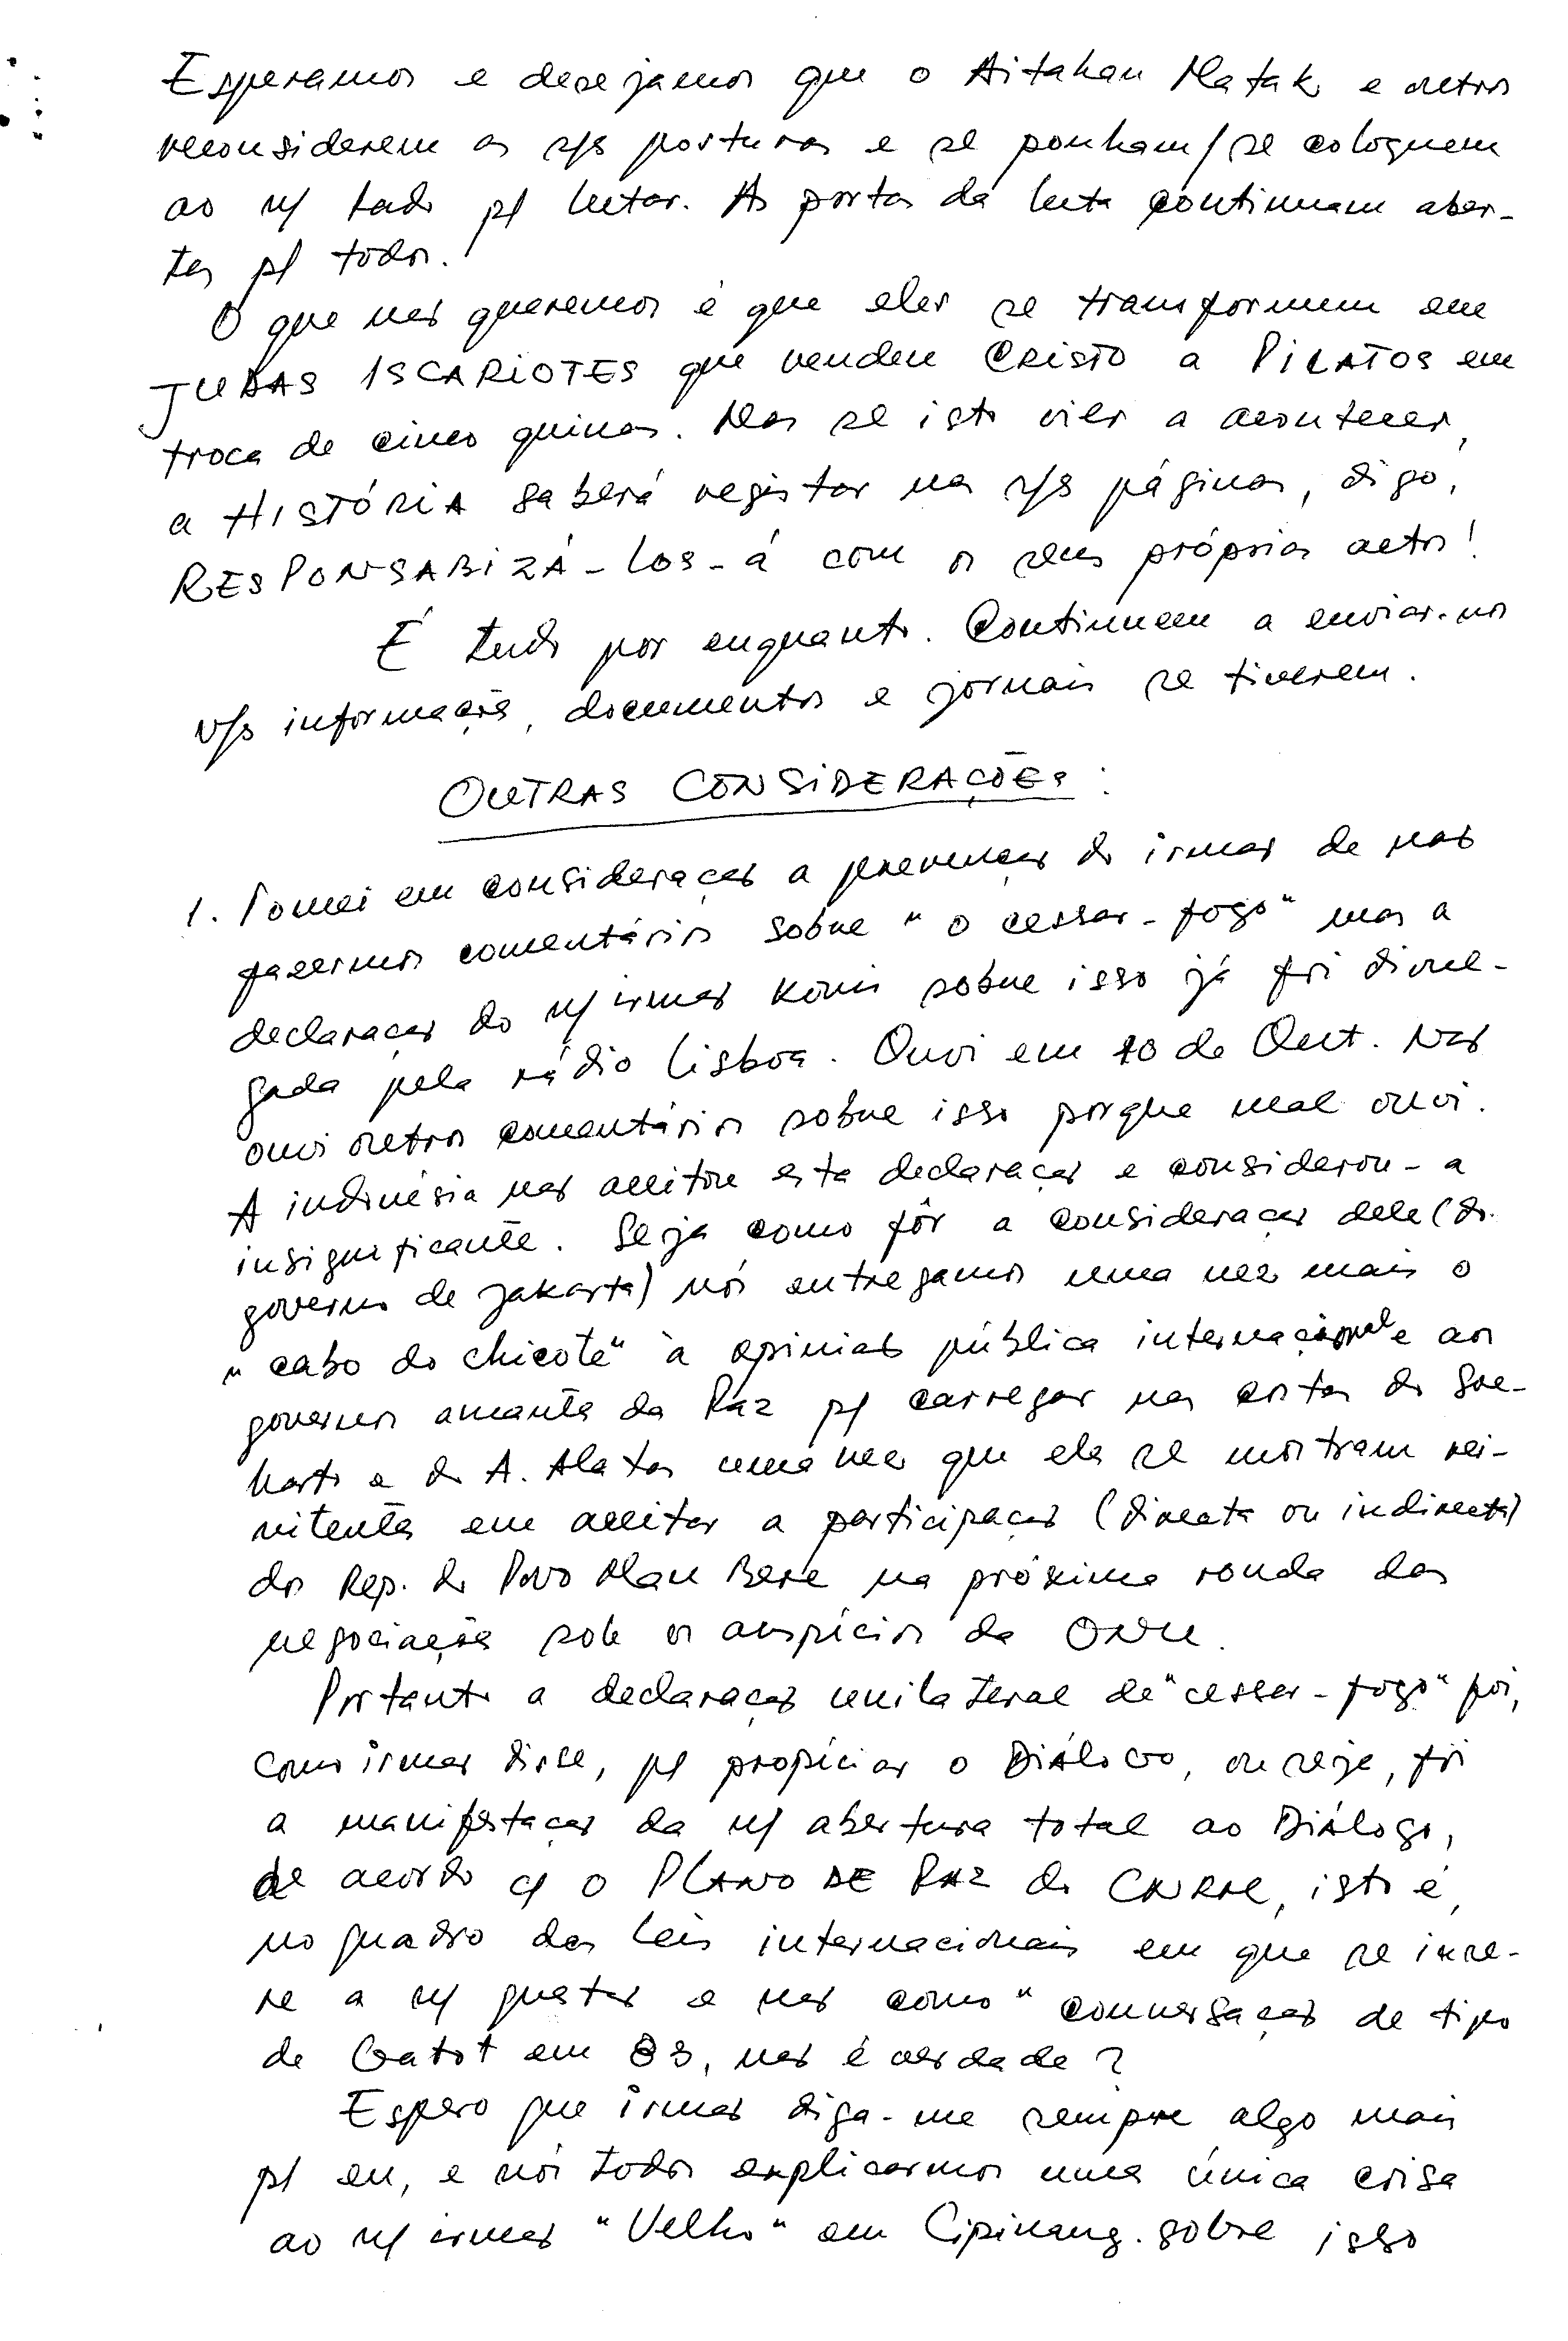 Esperamos e desejamos que o Aitahan Matak e outros
reconsiderem as s/s posturas e se ponham/se coloquem
ao n/ lado p/ lutar. As portas da luta continuam aber-
tas p/ todos.
O que não queremos é que eles se transformem em
JUDAS ISCARIOTES que vendeu CRISTO a PILATOS em
troca de cinco quinas. Mas se isto vier a acontecer,
a HISTÓRIA saberá registar nas s/s páginas, digo,
RESPONSABIZÁ-LOS-á com os seus próprios actos!
É tudo por enquanto. Continuem a enviar-nos
v/s informações, documentos e jornais se tiverem.
OUTRAS CONSIDERAÇÕES:
1. Tomei em consideração a prevenção do irmão de não
fazermos comentários sobre "o cessar-fogo" mas a
declaração do n/ irmão Konis sobre isso já foi divul-
gada pela rádio Lisboa. Ouvi em 10 de Out. Não
ouvi outros comentários sobre isso porque mal ouvi.
A indonésia não aceitou esta declaração e considerou-a
insignificante. Seja como fôr a consideração dele (do
governo de jakarta) nós entregamos uma vez mais o
"cabo do chicote" à opinião pública internacional e aos
governos amantes da Paz p/ carregar nas costas do Soe-
harto e do A. Alatas uma vez que eles se mostram rei-
nitentes em aceitar a participação (directa ou indirecta)
dos Rep. do Povo Mau Bere na próxima ronda das
negociações sob os auspícios da ONU.
Portanto a declaração unilateral de "cessar-fogo" foi,
como irmão disse, p/ propiciar o DIÁLOGO, ou seja, foi
a manifestação da n/ abertura total ao Diálogo,
de acordo c/ o PLANO DE PAZ do CNRM, isto é,
no quadro das leis internacionais em que se inse-
re a n/ questão e não como "conversação de tipo
de Gatot em 83, não é verdade?
Espero que irmão diga-me sempre algo mais
p/ eu, e nós todos explicarmos uma única coisa
ao n/ irmão "Velho" em Cipinang. sobre isso